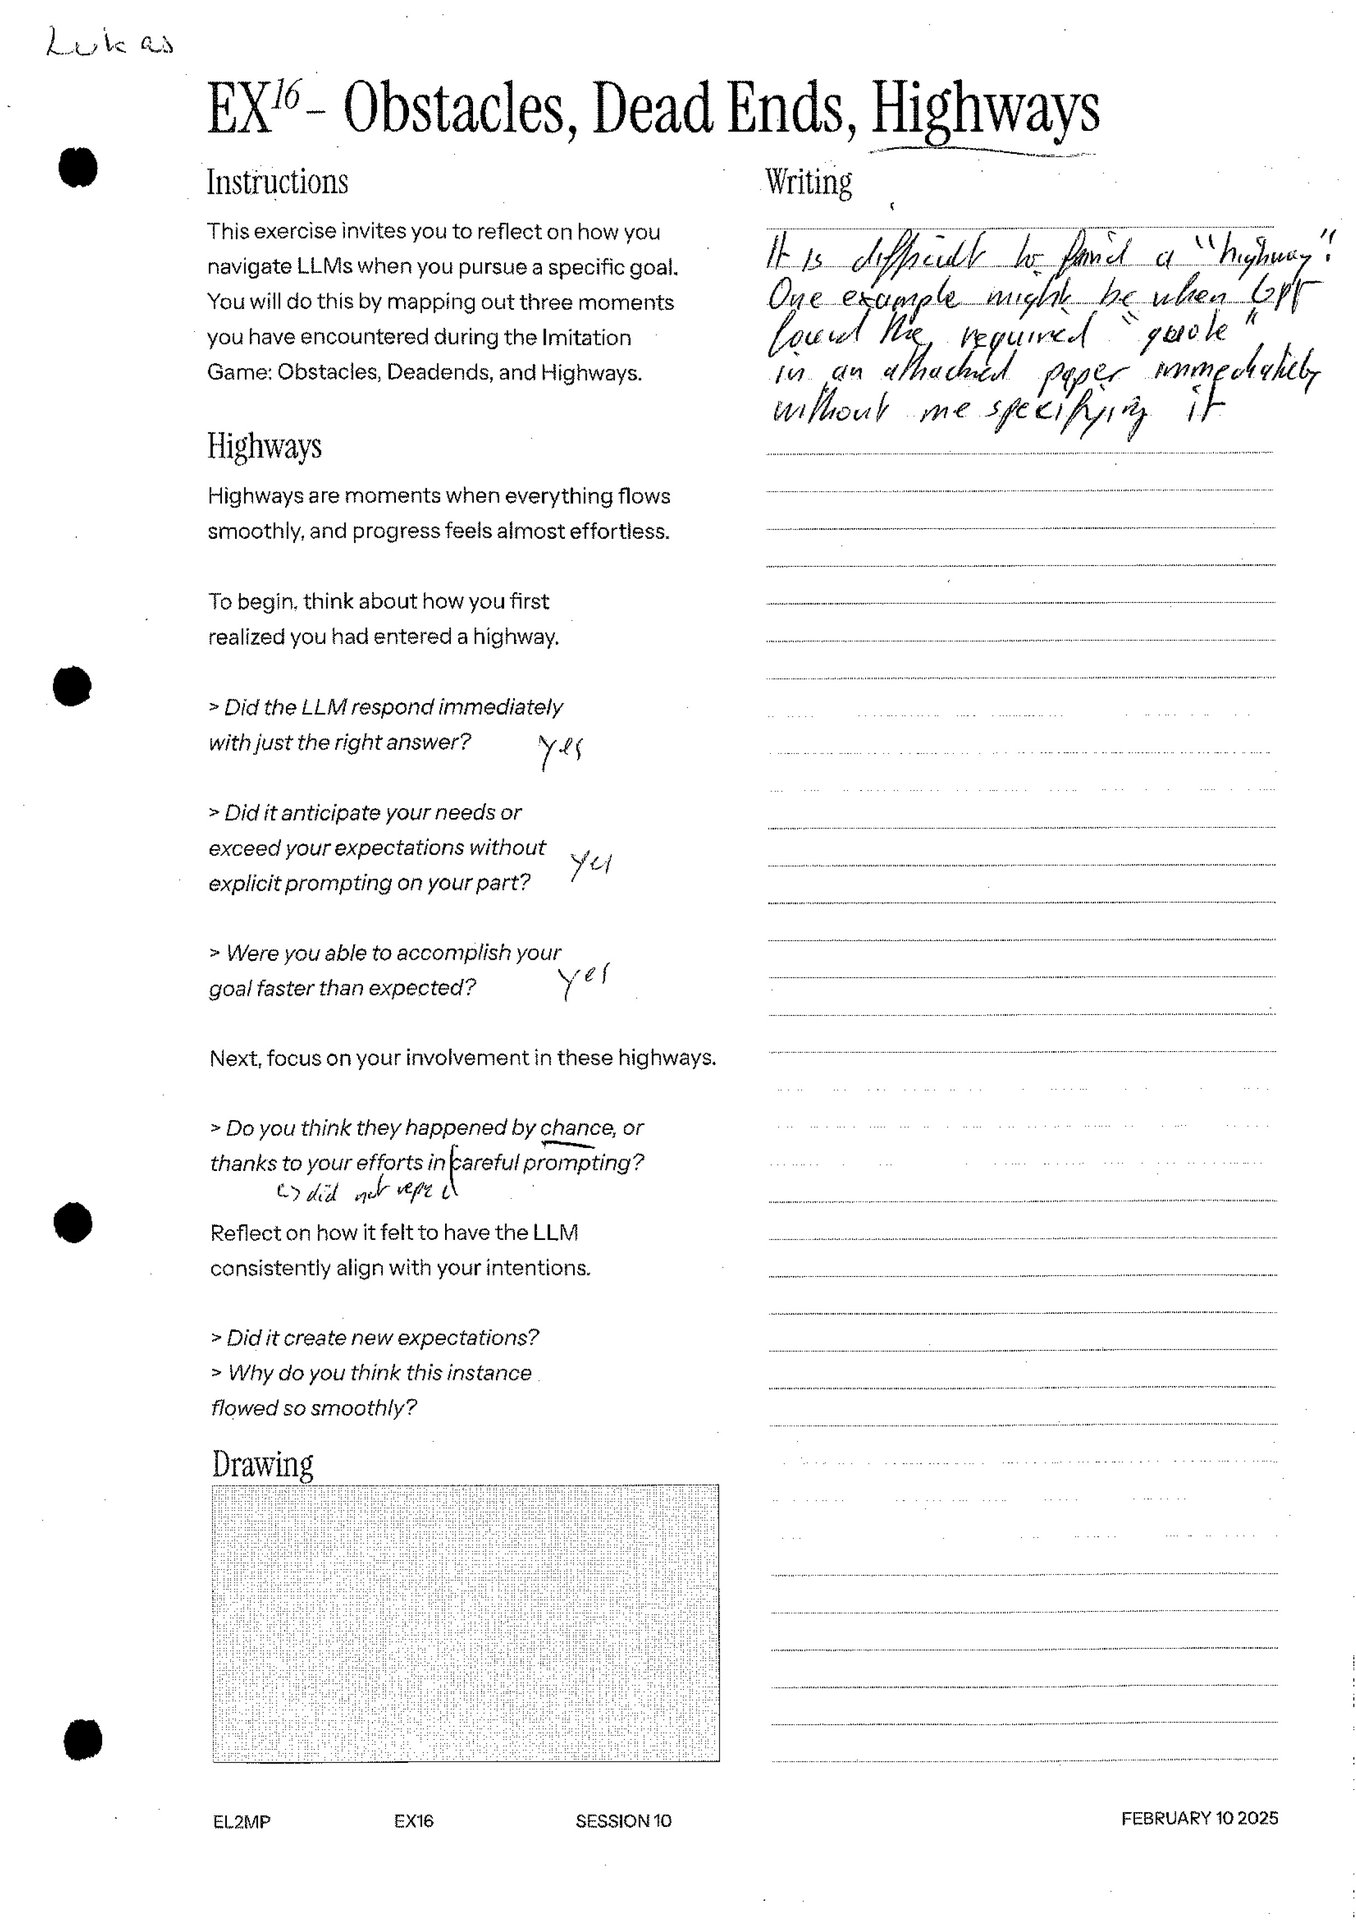 Lukas
EX16 - Obstacles, Dead Ends, Highways
Instructions
This exercise invites you to reflect on how you
navigate LLMs when you pursue a specific goal.
You will do this by mapping out three moments
you have encountered during the Imitation
Game: Obstacles, Deadends, and Highways.
Highways
Highways are moments when everything flows
smoothly, and progress feels almost effortless.
To begin, think about how you first
realized you had entered a highway.
> Did the LLM respond immediately
with just the right answer? yes
> Did it anticipate your needs or
exceed your expectations without
explicit prompting on your part? yes
> Were you able to accomplish your
goal faster than expected? yes
Next, focus on your involvement in these highways.
> Do you think they happened by chance, or
thanks to your efforts in careful prompting?
did not
Reflect on how it felt to have the LLM
consistently align with your intentions.
> Did it create new expectations?
> Why do you think this instance
flowed so smoothly?
Drawing
Writing
It is difficult to find a "highway".
One example might be when GPT
found the required "quote"
in an attached paper immediately
without me specifying it
EL2MP EX16 SESSION 10 FEBRUARY 10 2025